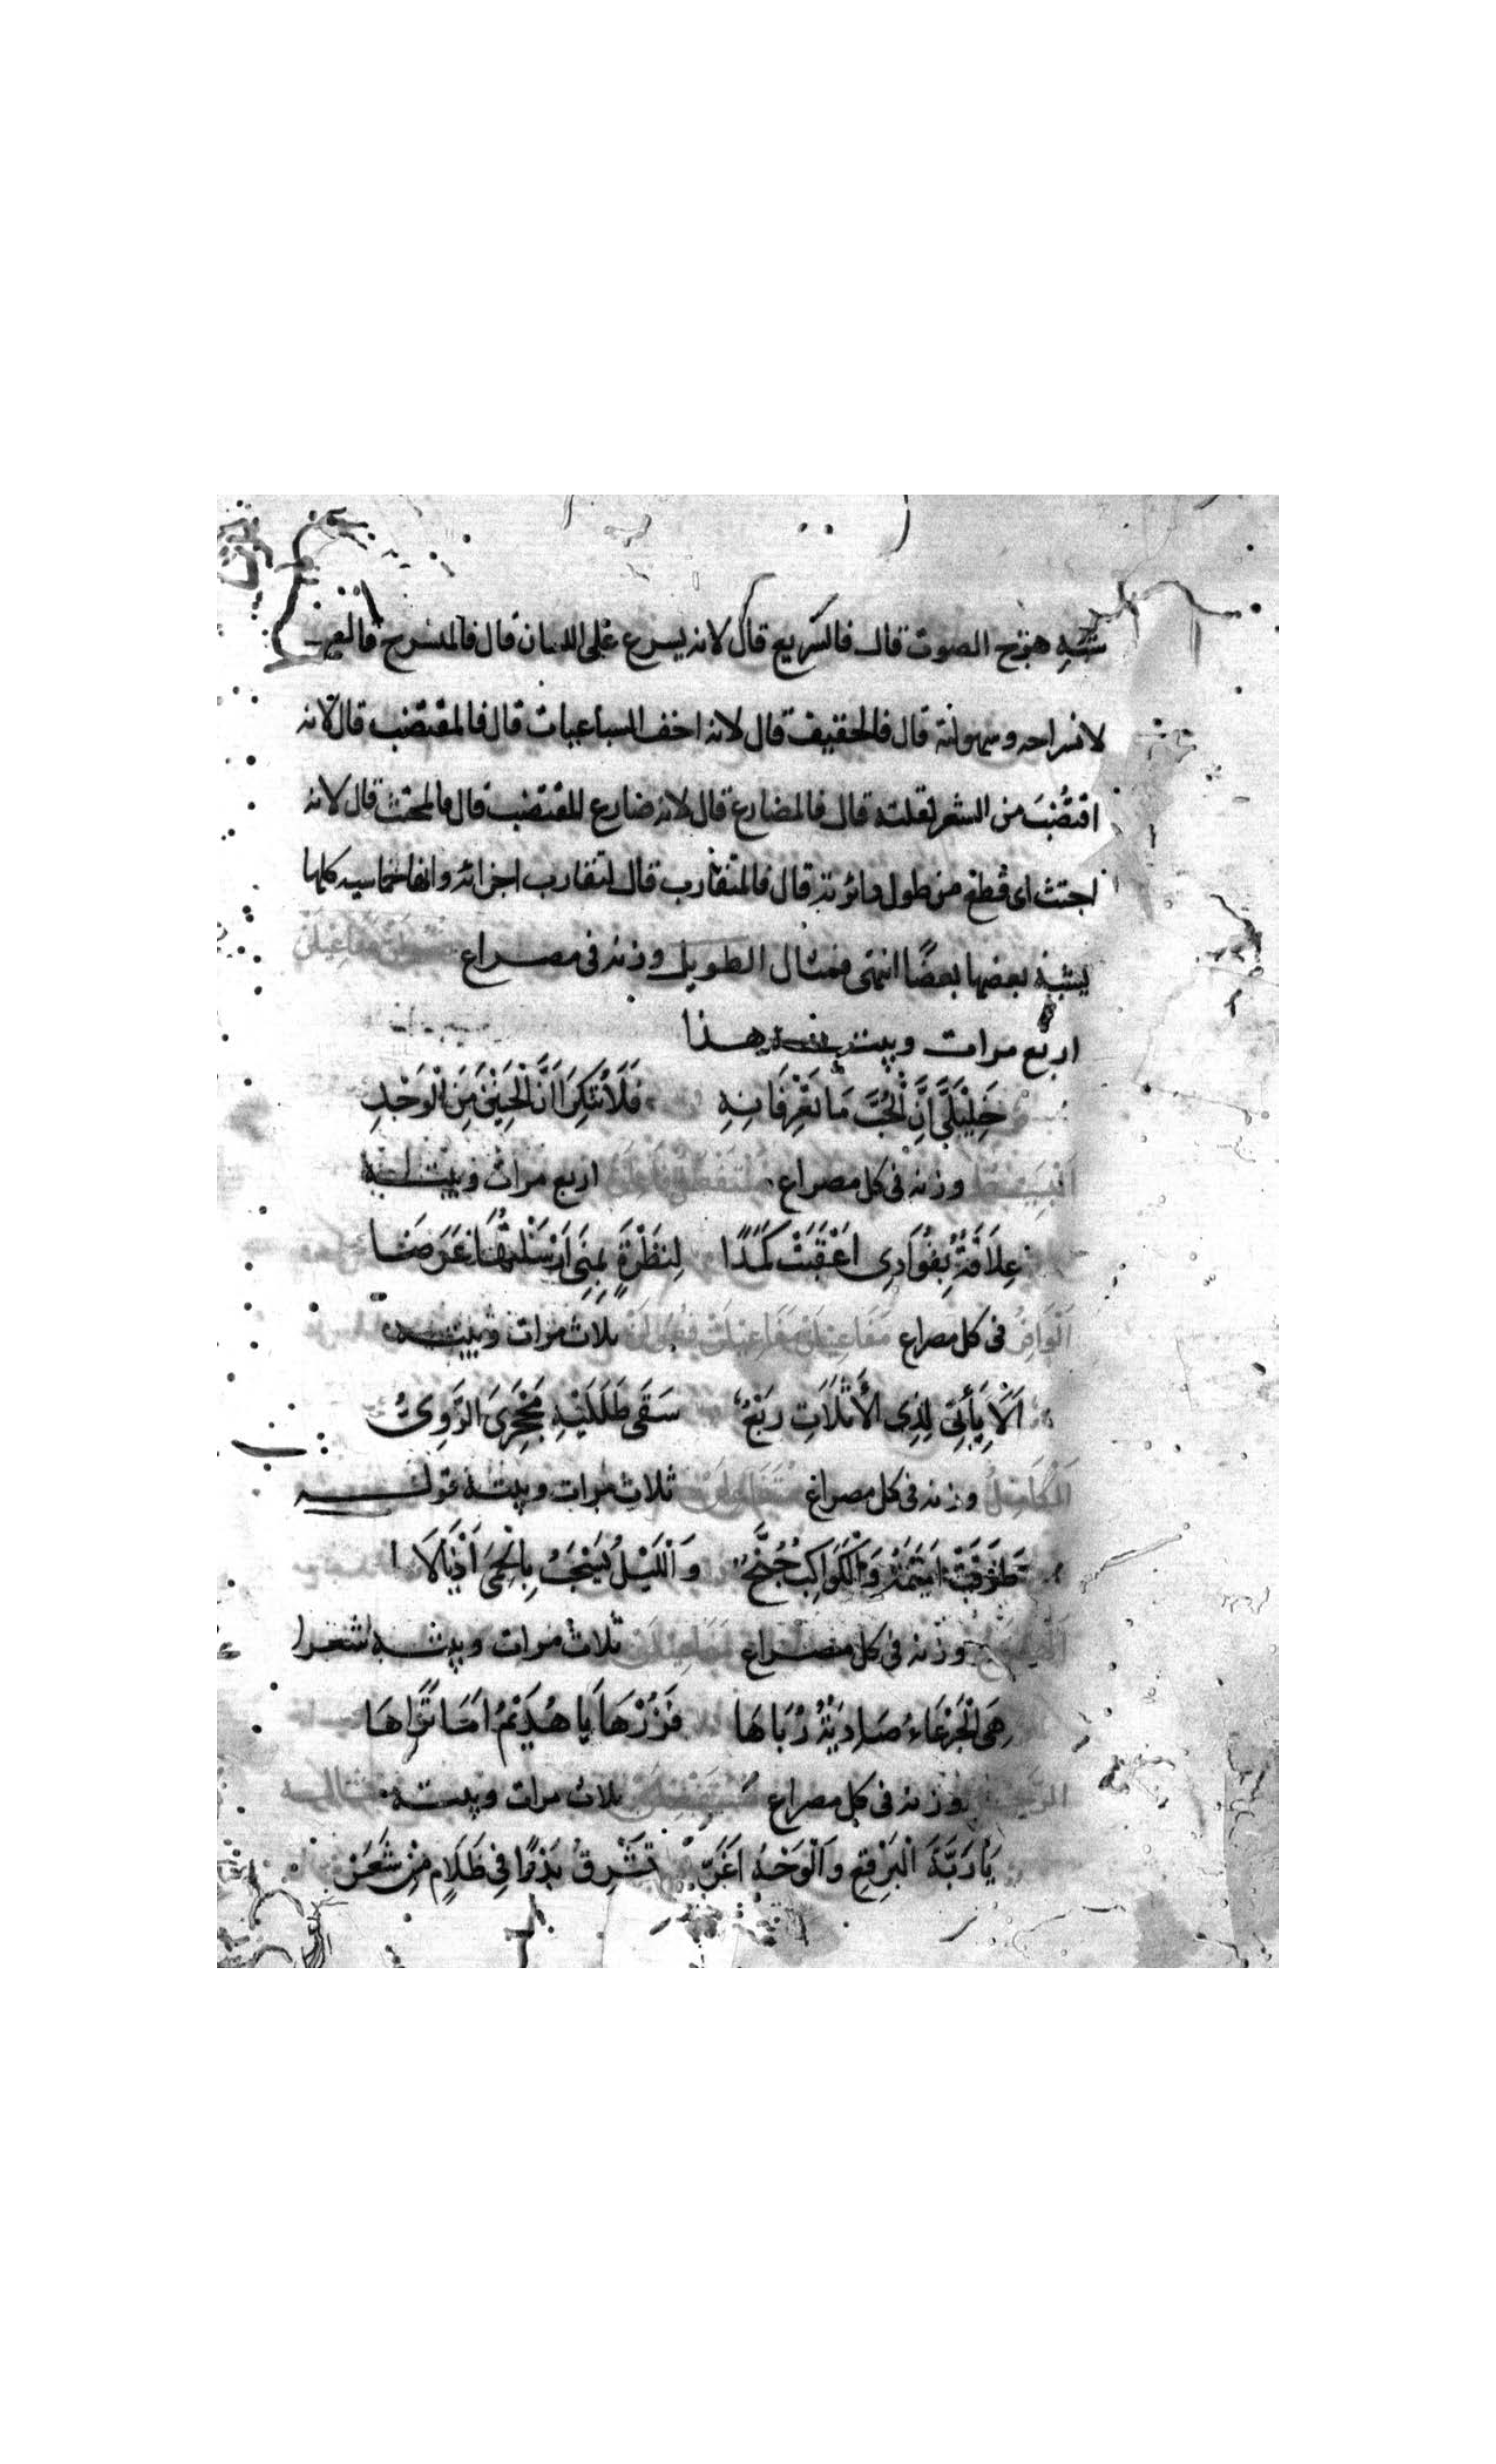 شبه هزج الصوت قال فالسريع قال لانه يسرع على اللسان قال فالمنسرح قال
لانسراحه وسهولته قال فالخفيف قال لانه اخف السباعيات قال فالمقتضب قال لانه
اقتُضِبَ من الشعر لقلته قال فالمضارع قال لانه ضارع المقتضب قال فالمجتث قال لانه
اجتث اى قطع من طول دائرته قال فالمتقارب قال لتقارب اجزائه وانها خماسيه كلها
يشبه بعضها بعضًا انتهى فمثال الطويل وزنه فى مصراع فعولن مفاعيلن
اربع مرات وبيته هذا
خَلِيْلَىَّ اِنَّ الْحُبَّ مَا تَعْرِفَانِهِ فَلَا تُنْكِرَا اَنَّ الْحَنِيْنَ مِنَ الْوَجْدِ
البَسِيْط وزنه فى كل مصراع مستفعلن فاعلن اربع مرات وبيته
عِلَاقَةٌ بِفُؤَادِى اَعْقَبَتْ كَمَدًا لِنَظْرَةٍ بِمِنًى اَرْسَلْتُهَا عَرَضَا
اَلْوَافِرُ فى كل مصراع مَفَاعِيلن مَفَاعيلن فَعُولن ثلاث مرات وبيته
اَلَا يَأْتِى لِذِى الْأَثَلَاتِ رَبْعٌ سَقَى طَلَلَيْهِ مَجْرَى الرَّوِىُّ
اَلْكَامِلُ وزنه فى كل مصراع متفاعلن ثلاث مرات وبيته قوله
طَرَقَتْ اُمَيْمَةُ وَالْكَوَاكِبُ جُنَّحٌ وَاللَّيْلُ يَسْحَبُ بِالْحِمَى اَذْيَالَا
وزنه فى كل مصراع مفاعيلن ثلاث مرات وبيته شعرا
هِىَ الْجَرْعَاءُ صَادِيَةٌ رُبَاهَا فَزُرْهَا يَا هُذَيْمُ اَمَا تَرَاهَا
الرَّجَز وزنه فى كل مصراع مُسْتَفْعِلُنْ ثلاث مرات وبيته
يَا رَبَّةَ الْبُرْقُعِ وَالْوَجْهُ اَغَرّ تُشْرِقُ بَدْرًا فِى ظَلَامٍ مِنْ شَعَرْ